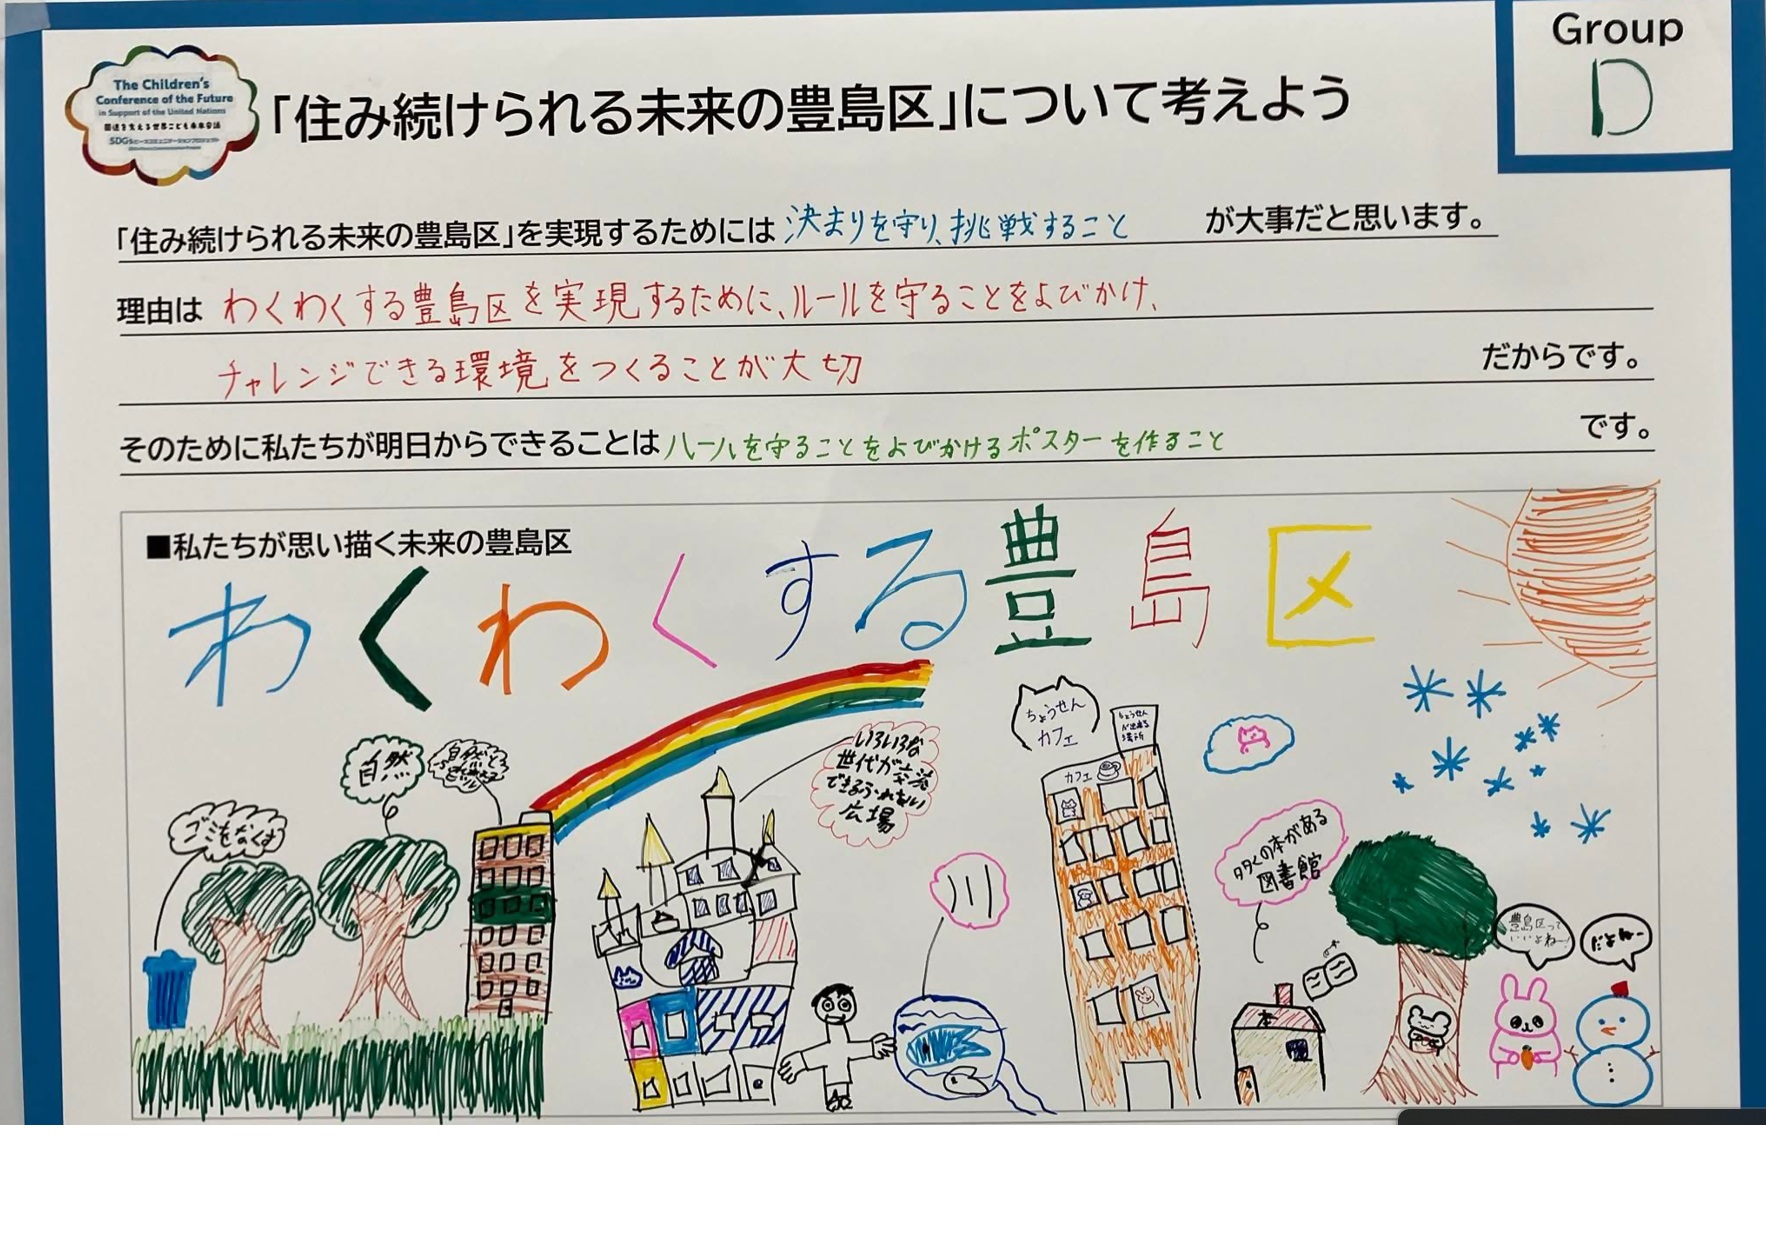 Group
D
The Children's
Conference of the Future
in Support of the United Nations
国連を支える世界こども未来会議
「住み続けられる未来の豊島区」について考えよう
「住み続けられる未来の豊島区」を実現するためには 決まりを守り、挑戦すること が大事だと思います。
理由は わくわくする豊島区を実現するために、ルールを守ることをよびかけ、
チャレンジできる環境をつくることが大切 だからです。
そのために私たちが明日からできることは ルールを守ることをよびかけるポスターを作ること です。
■私たちが思い描く未来の豊島区
わくわくする豊島区
ゴミをなくす
自然
自然と
いろいろな
世代が交流
できるふれあい
広場
ちょうせん
カフェ
ちょうせん
が出来る
場所
カフェ
川
タタくの本がある
図書館
本
豊島区って
いいよね
だよねー